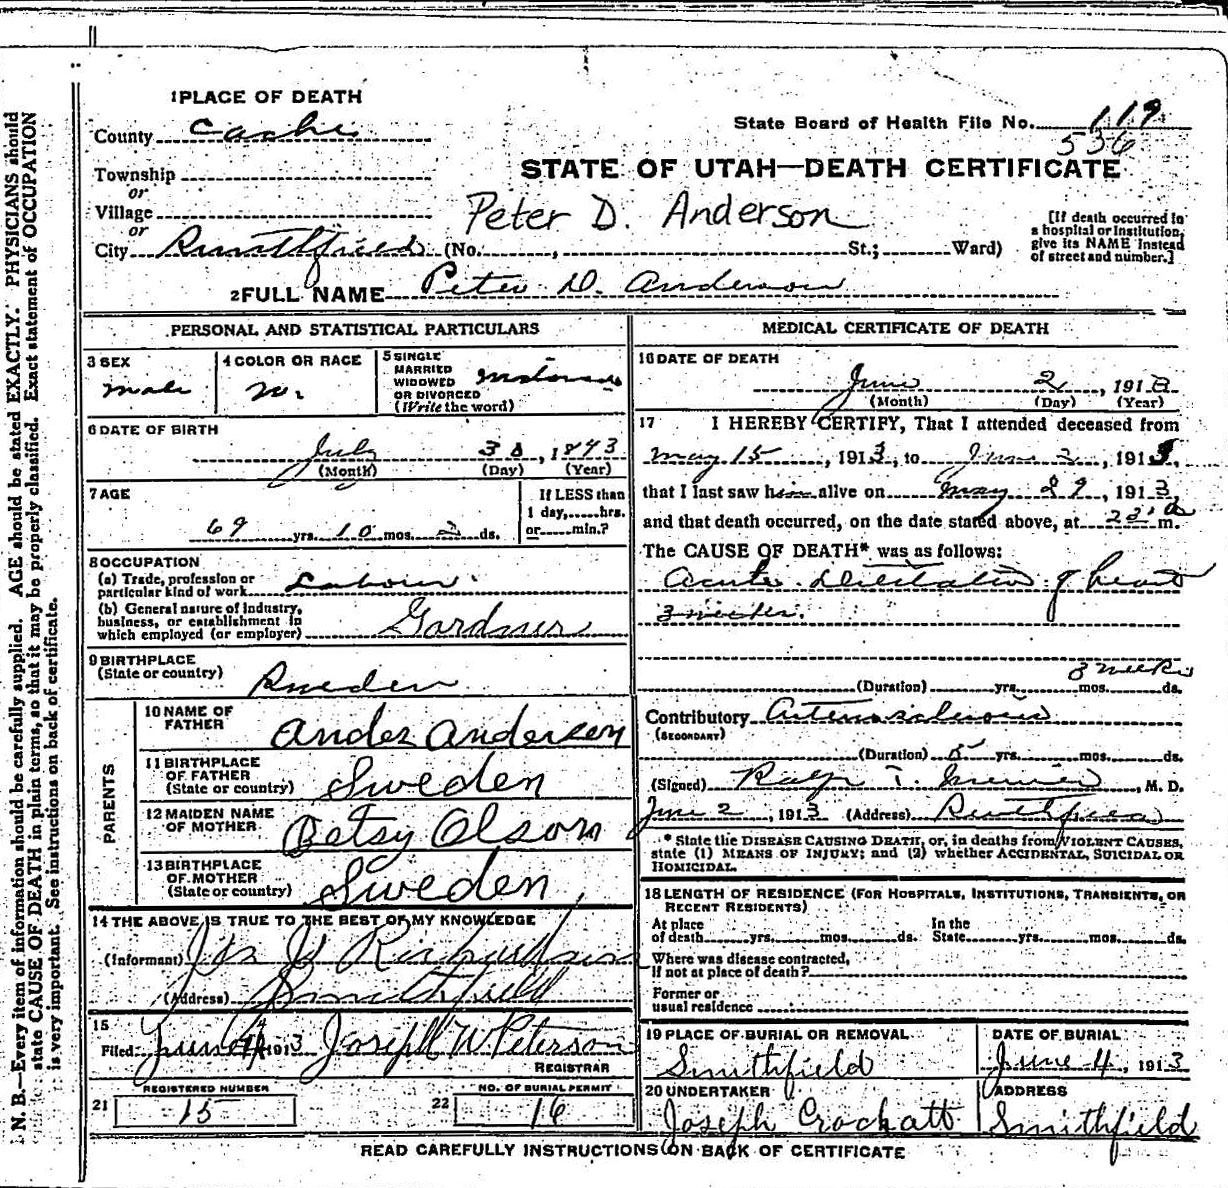 N. B.—Every item of information should be carefully supplied. AGE should be stated EXACTLY. PHYSICIANS should
state CAUSE OF DEATH in plain terms, so that it may be properly classified. Exact statement of OCCUPATION
is very important. See instructions on back of certificate.
1 PLACE OF DEATH
County Cache
State Board of Health File No. 119
536
STATE OF UTAH—DEATH CERTIFICATE
Township
or
Village
or
City Smithfield (No. , St.; Ward)
Peter D. Anderson
[If death occurred in
a hospital or institution,
give its NAME instead
of street and number.]
2 FULL NAME Peter D. Anderson
PERSONAL AND STATISTICAL PARTICULARS
3 SEX
male
4 COLOR OR RACE
W.
5 SINGLE
MARRIED
WIDOWED
OR DIVORCED
(Write the word)
6 DATE OF BIRTH
July 30, 1843
(Month) (Day) (Year)
7 AGE
69 yrs. 10 mos. 2 ds.
If LESS than
1 day, hrs.
or min.?
8 OCCUPATION
(a) Trade, profession or
particular kind of work
(b) General nature of industry,
business, or establishment in
which employed (or employer) Gardner
9 BIRTHPLACE
(State or country) Sweden
PARENTS
10 NAME OF
FATHER Andes Andersen
11 BIRTHPLACE
OF FATHER
(State or country) Sweden
12 MAIDEN NAME
OF MOTHER Betsy Olson
13 BIRTHPLACE
OF MOTHER
(State or country) Sweden
14 THE ABOVE IS TRUE TO THE BEST OF MY KNOWLEDGE
(Informant)
(Address) Smithfield
15
Filed June 4 1913 Joseph W Peterson
REGISTRAR
REGISTERED NUMBER
21 15
NO. OF BURIAL PERMIT
22 16
MEDICAL CERTIFICATE OF DEATH
16 DATE OF DEATH
June 2, 1913
(Month) (Day) (Year)
17 I HEREBY CERTIFY, That I attended deceased from
May 15, 1913, to June 2, 1913,
that I last saw him alive on May 29, 1913,
and that death occurred, on the date stated above, at m.
The CAUSE OF DEATH* was as follows:
Acute dilitation of heart
3 weeks.
3 weeks
(Duration) yrs. mos. ds.
Contributory Arteriosclerosis
(SECONDARY)
(Duration) 5 yrs. mos. ds.
(Signed) Ralph T. , M. D.
June 2, 1913 (Address) Smithfield
* State the DISEASE CAUSING DEATH, or, in deaths from VIOLENT CAUSES,
state (1) MEANS OF INJURY; and (2) whether ACCIDENTAL, SUICIDAL OR
HOMICIDAL.
18 LENGTH OF RESIDENCE (FOR HOSPITALS, INSTITUTIONS, TRANSIENTS, OR
RECENT RESIDENTS)
At place
of death yrs. mos. ds.
In the
State yrs. mos. ds.
Where was disease contracted,
if not at place of death?
Former or
usual residence
19 PLACE OF BURIAL OR REMOVAL
Smithfield
DATE OF BURIAL
June 4, 1913
20 UNDERTAKER
Joseph Crockatt
ADDRESS
Smithfield
READ CAREFULLY INSTRUCTIONS ON BACK OF CERTIFICATE